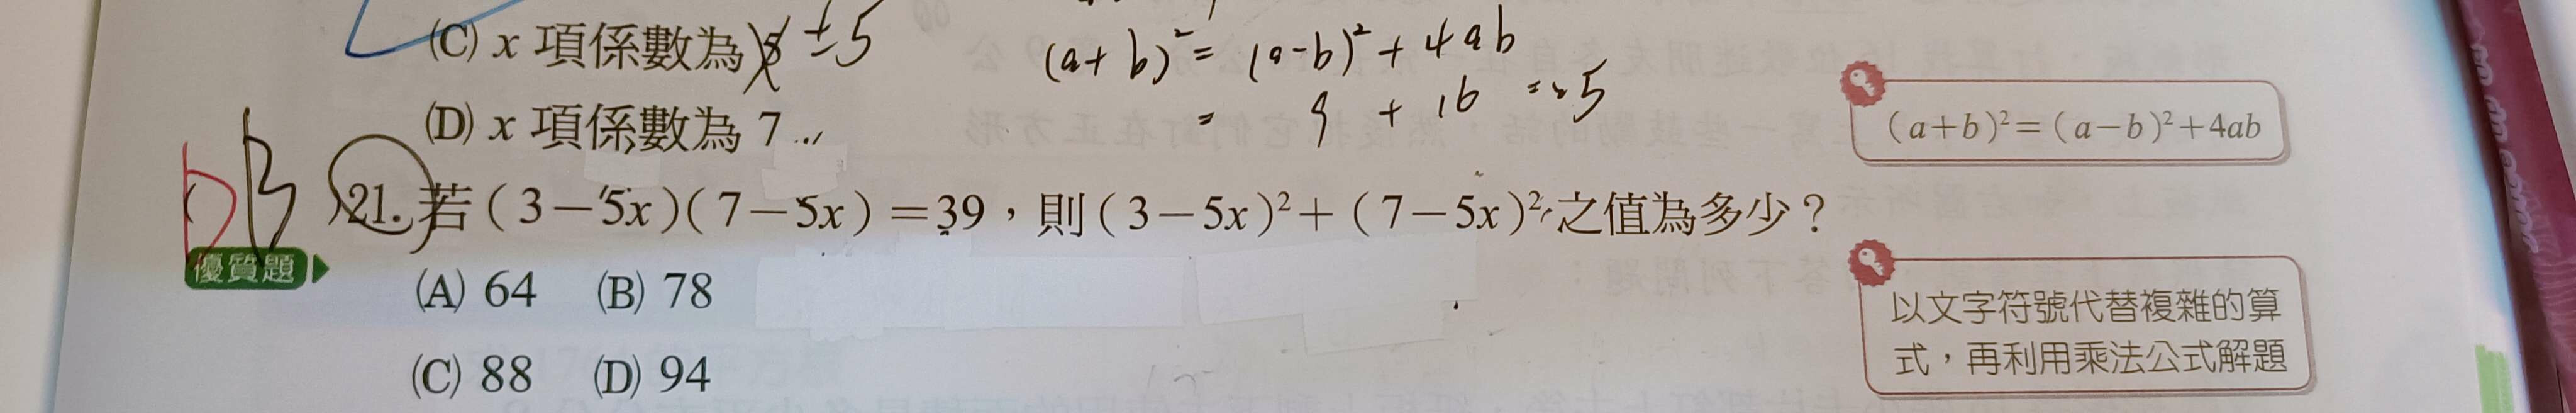 (C) x 項係數為 8 ±5
(a+b)²=(a-b)²+4ab
= 9 + 16 = 25
(D) x 項係數為 7
(a+b)²=(a-b)²+4ab
B 21. 若(3-5x)(7-5x)=39,則(3-5x)²+(7-5x)²之值為多少?
優質題
(A) 64 (B) 78
(C) 88 (D) 94
以文字符號代替複雜的算
式,再利用乘法公式解題